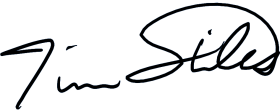 Jim Stiles